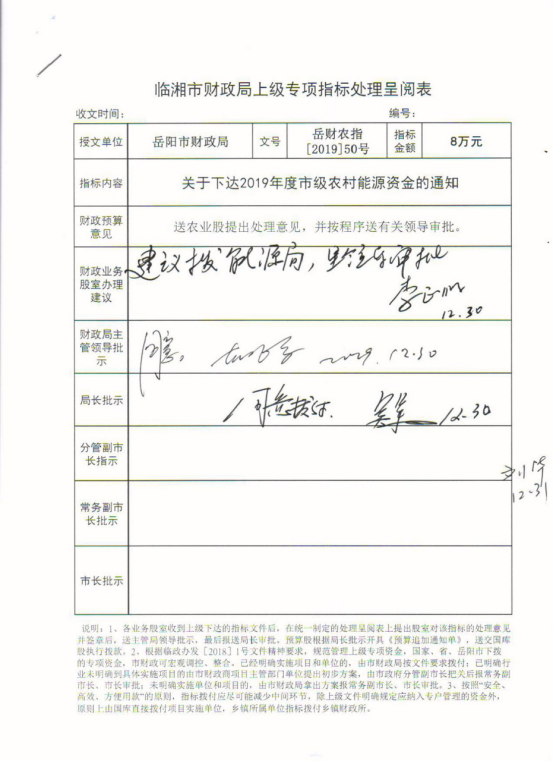 临湘市财政局上级专项指标处理呈阅表
收文时间： 编号：
授文单位 岳阳市财政局 文号 岳财农指[2019]50号 指标金额 8万元
指标内容 关于下达2019年度市级农村能源资金的通知
财政预算意见 送农业股提出处理意见，并按程序送有关领导审批。
财政业务股室办理建议 建议拨能源局，呈领导审批
12.30
财政局主管领导批示 同意。 2019.12.30
局长批示 同意拨付. 12-30
分管副市长指示
12-31
常务副市长批示
市长批示
说明：1、各业务股室收到上级下达的指标文件后，在统一制定的处理呈阅表上提出股室对该指标的处理意见
并签章后，送主管局领导批示，最后报送局长审批。预算股根据局长批示开具《预算追加通知单》，送交国库
股执行拨款。2、根据临政办发［2018］1号文件精神要求，规范管理上级专项资金。国家、省、岳阳市下拨
的专项资金，市财政可宏观调控、整合，已经明确实施项目和单位的，由市财政局按文件要求拨付；已明确行
业未明确到具体实施项目的由市财政商项目主管部门单位提出初步方案，由市政府分管副市长把关后报常务副
市长、市长审批；未明确实施单位和项目的，由市财政局拿出方案报常务副市长、市长审批。3、按照“安全、
高效、方便用款”的原则，指标拨付应尽可能减少中间环节，除上级文件明确规定应纳入专户管理的资金外，
原则上由国库直接拨付项目实施单位，乡镇所属单位指标拨付乡镇财政所。